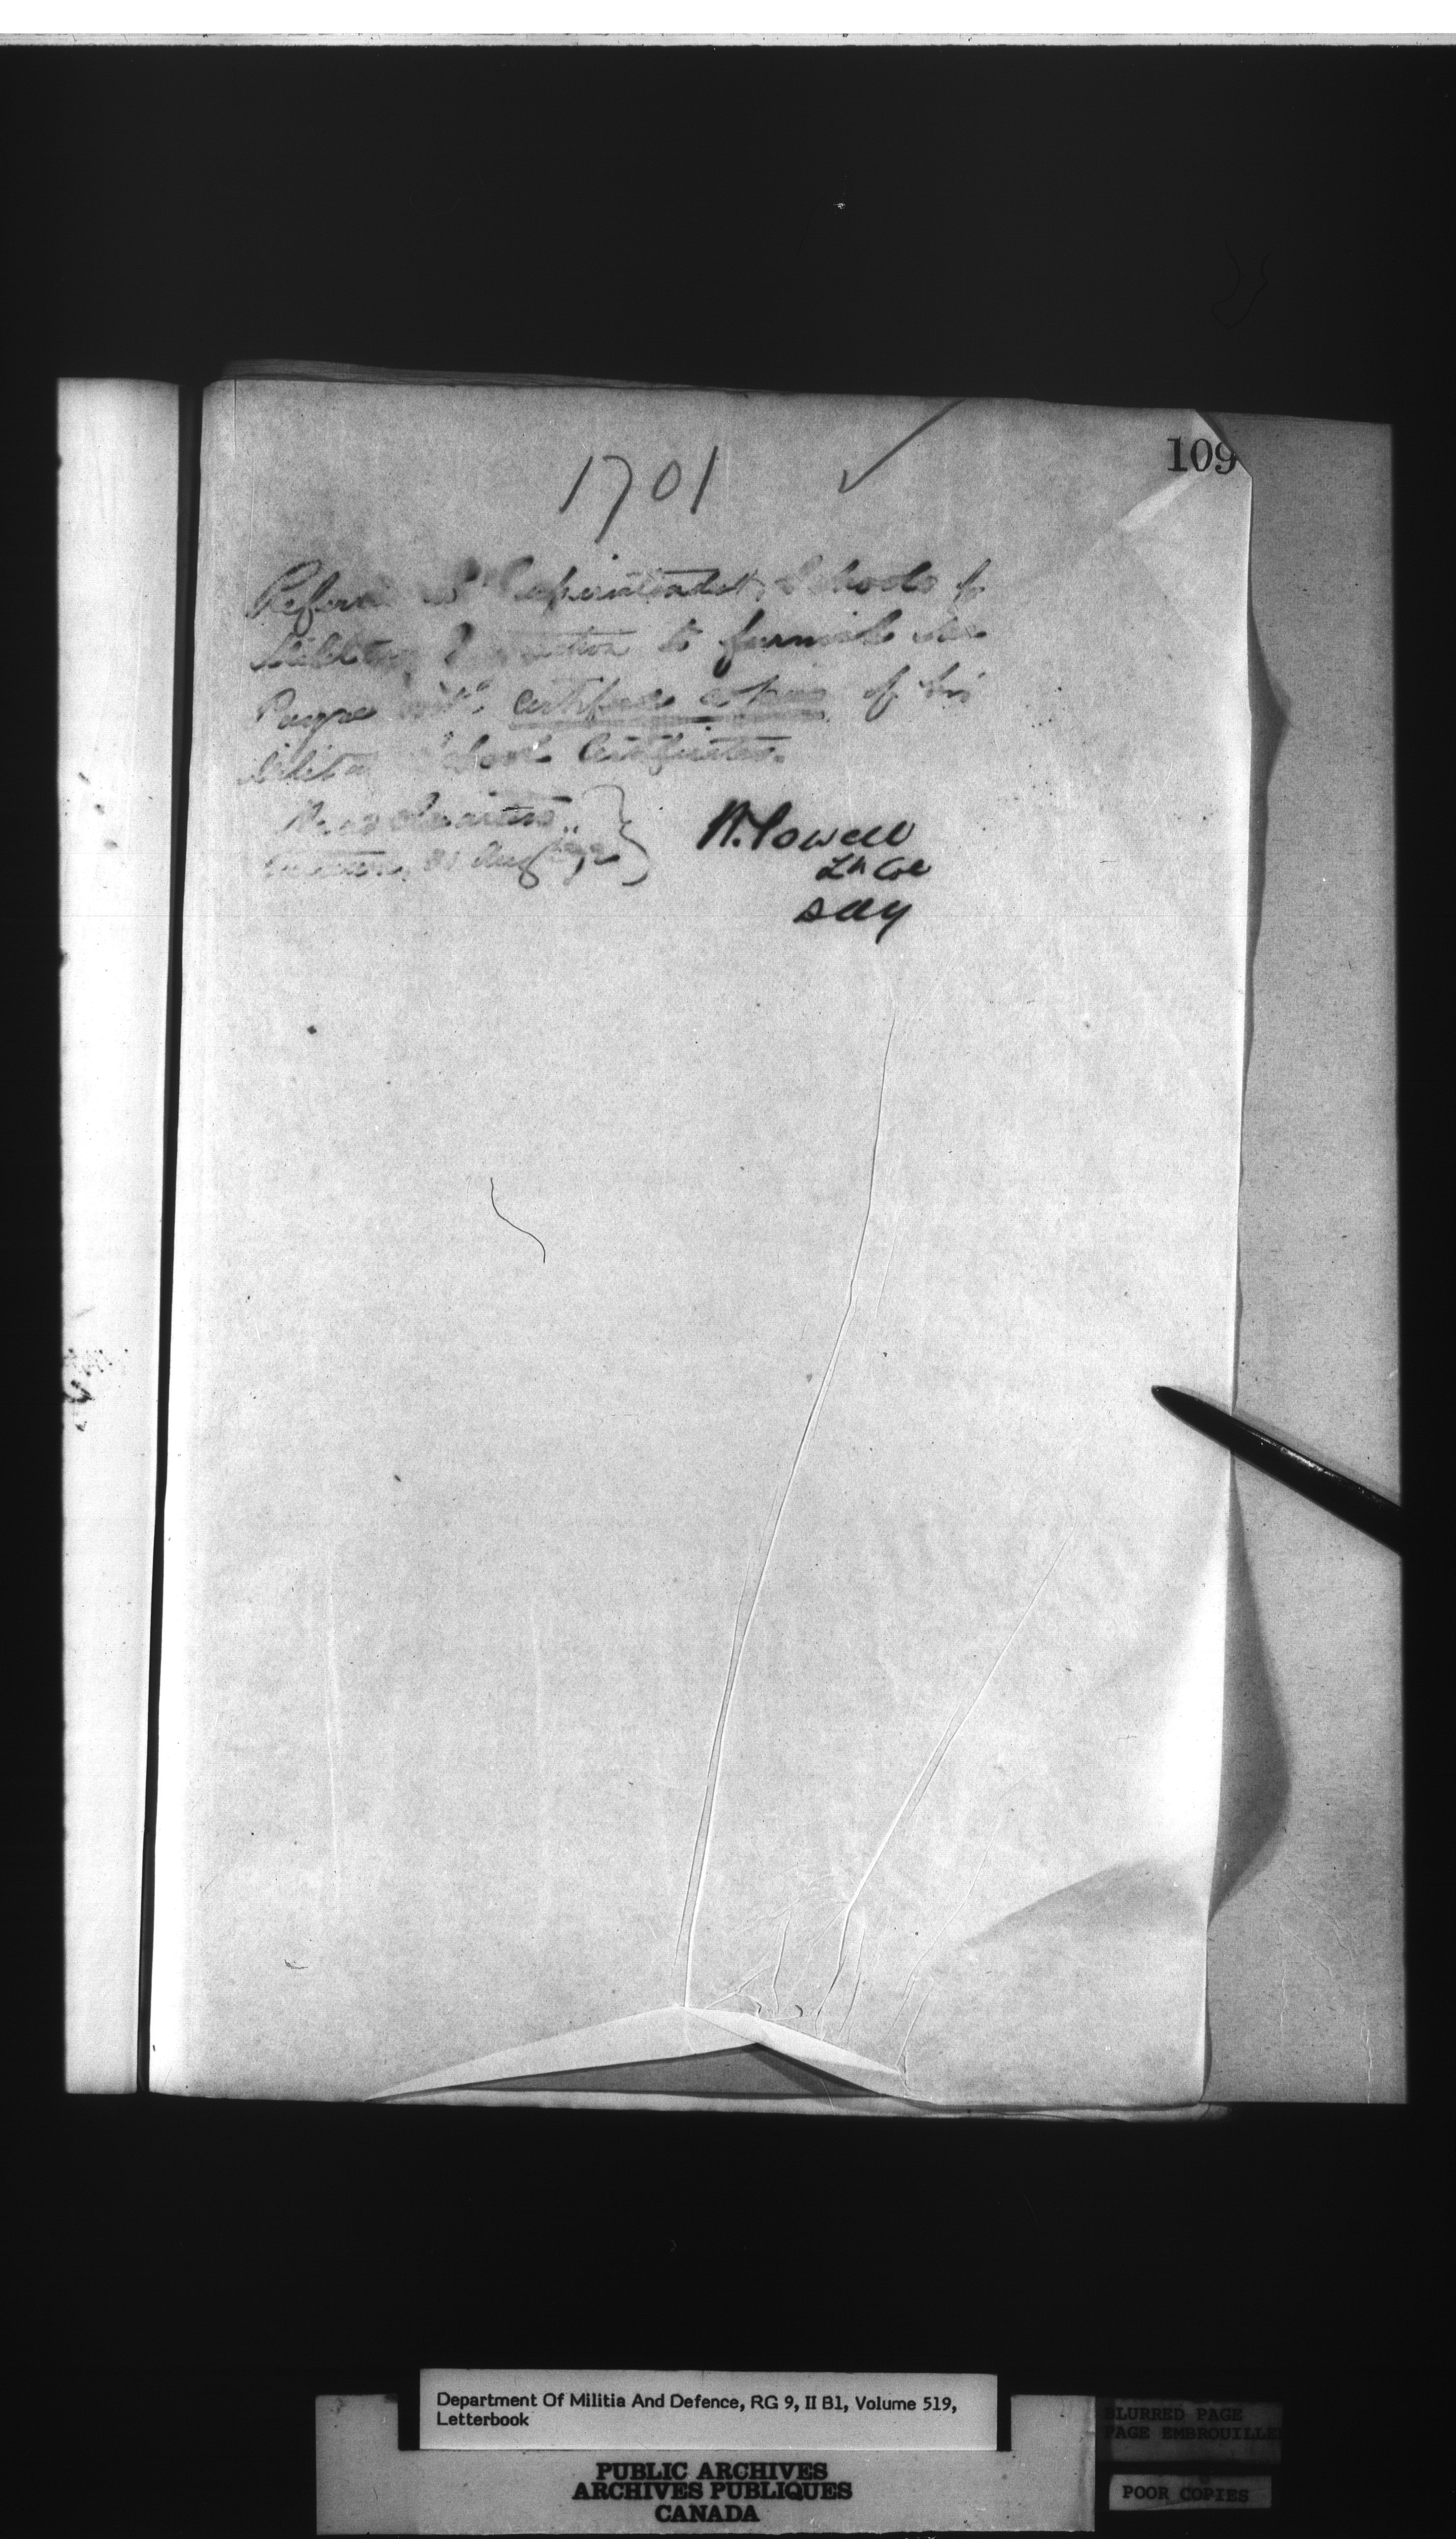 109
1701
Referred to Superintendent, Schools of
Military Instruction to furnish
Payne with certified copies of his
Military School Certificates.
Head Quarters
Ottawa, Aug
W. Powell
Lt Col
DAG
Department Of Militia And Defence, RG 9, II B1, Volume 519,
Letterbook
BLURRED PAGE
PAGE EMBROUILLE
PUBLIC ARCHIVES
ARCHIVES PUBLIQUES
CANADA
POOR COPIES